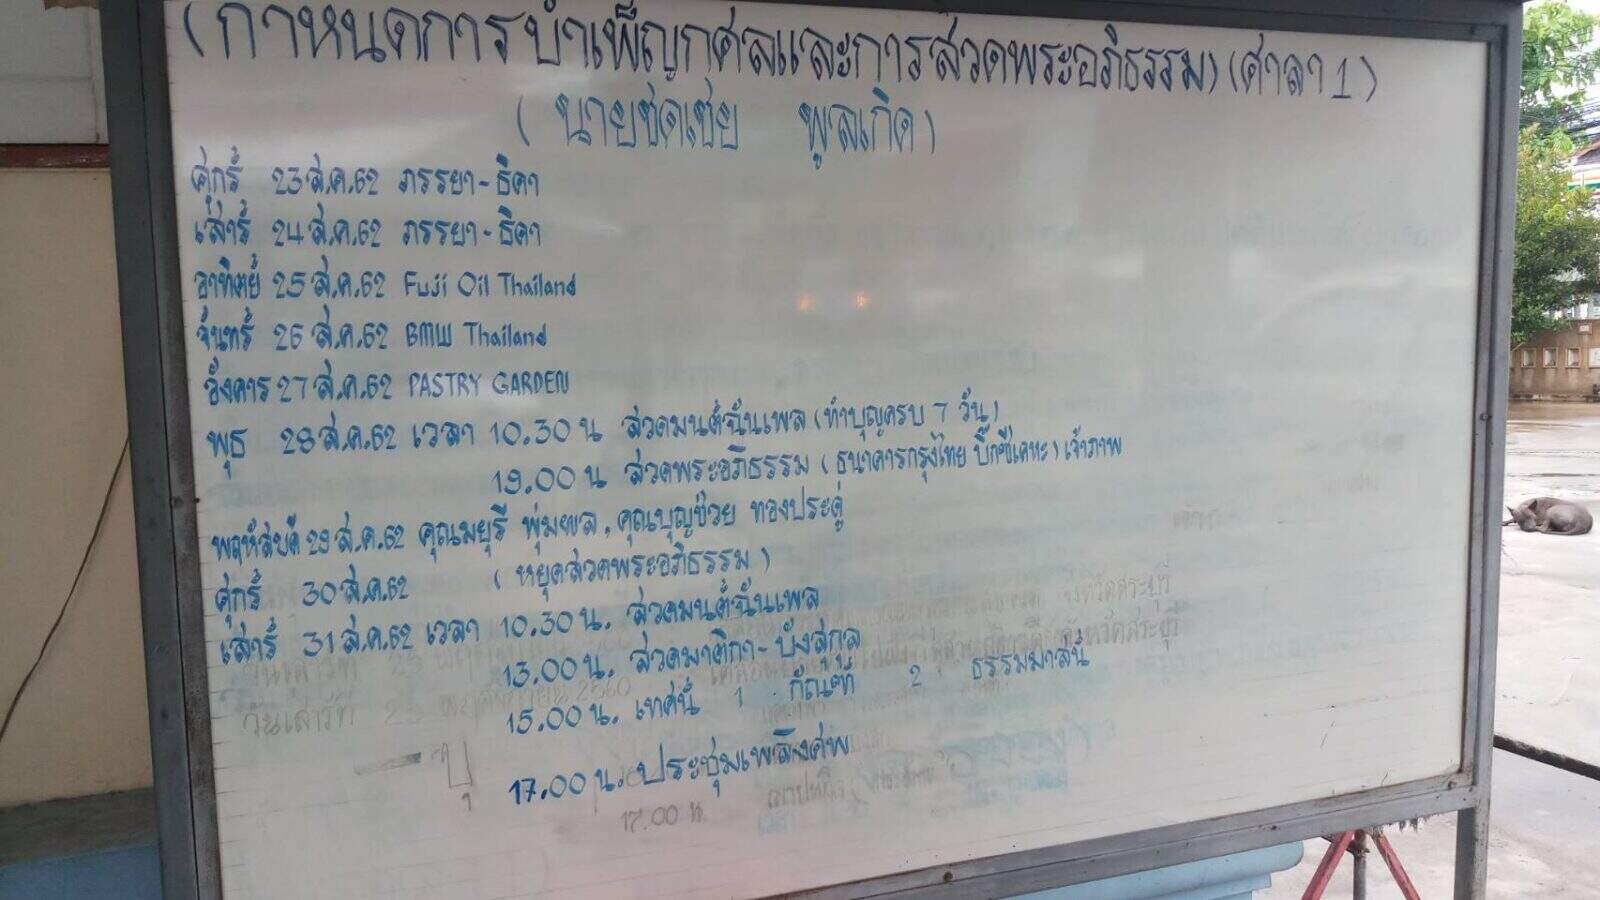 (กำหนดการบำเพ็ญกุศลและการสวดพระอภิธรรม) (ศาลา 1)
(นายชดเชย พูลเกิด)
ศุกร์ 23 ส.ค.62 ภรรยา - ธิดา
เสาร์ 24 ส.ค.62 ภรรยา - ธิดา
อาทิตย์ 25 ส.ค.62 Fuji Oil Thailand
จันทร์ 26 ส.ค.62 BMW Thailand
อังคาร 27 ส.ค.62 PASTRY GARDEN
พุธ 28 ส.ค.62 เวลา 10.30 น สวดมนต์ฉันเพล (ทำบุญครบ 7 วัน)
19.00 น สวดพระอภิธรรม (ธนาคารกรุงไทย บิ๊กซีเคหะ) เจ้าภาพ
พฤหัสบดี 29 ส.ค.62 คุณมยุรี พุ่มผล, คุณบุญช่วย ทองประดู่
ศุกร์ 30 ส.ค.62 (หยุดสวดพระอภิธรรม)
เสาร์ 31 ส.ค.62 เวลา 10.30 น. สวดมนต์ฉันเพล
13.00 น. สวดมาติกา - บังสุกุล
15.00 น. เทศน์ 1 กัณฑ์ 2 ธรรมมาสน์
17.00 น. ประชุมเพลิงศพ
17.00 น